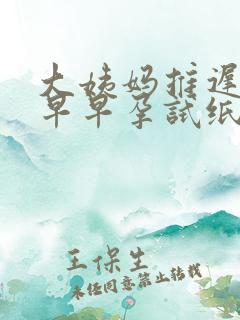 大姨妈推迟
早早孕試纸
王保生
未经同意禁止转载